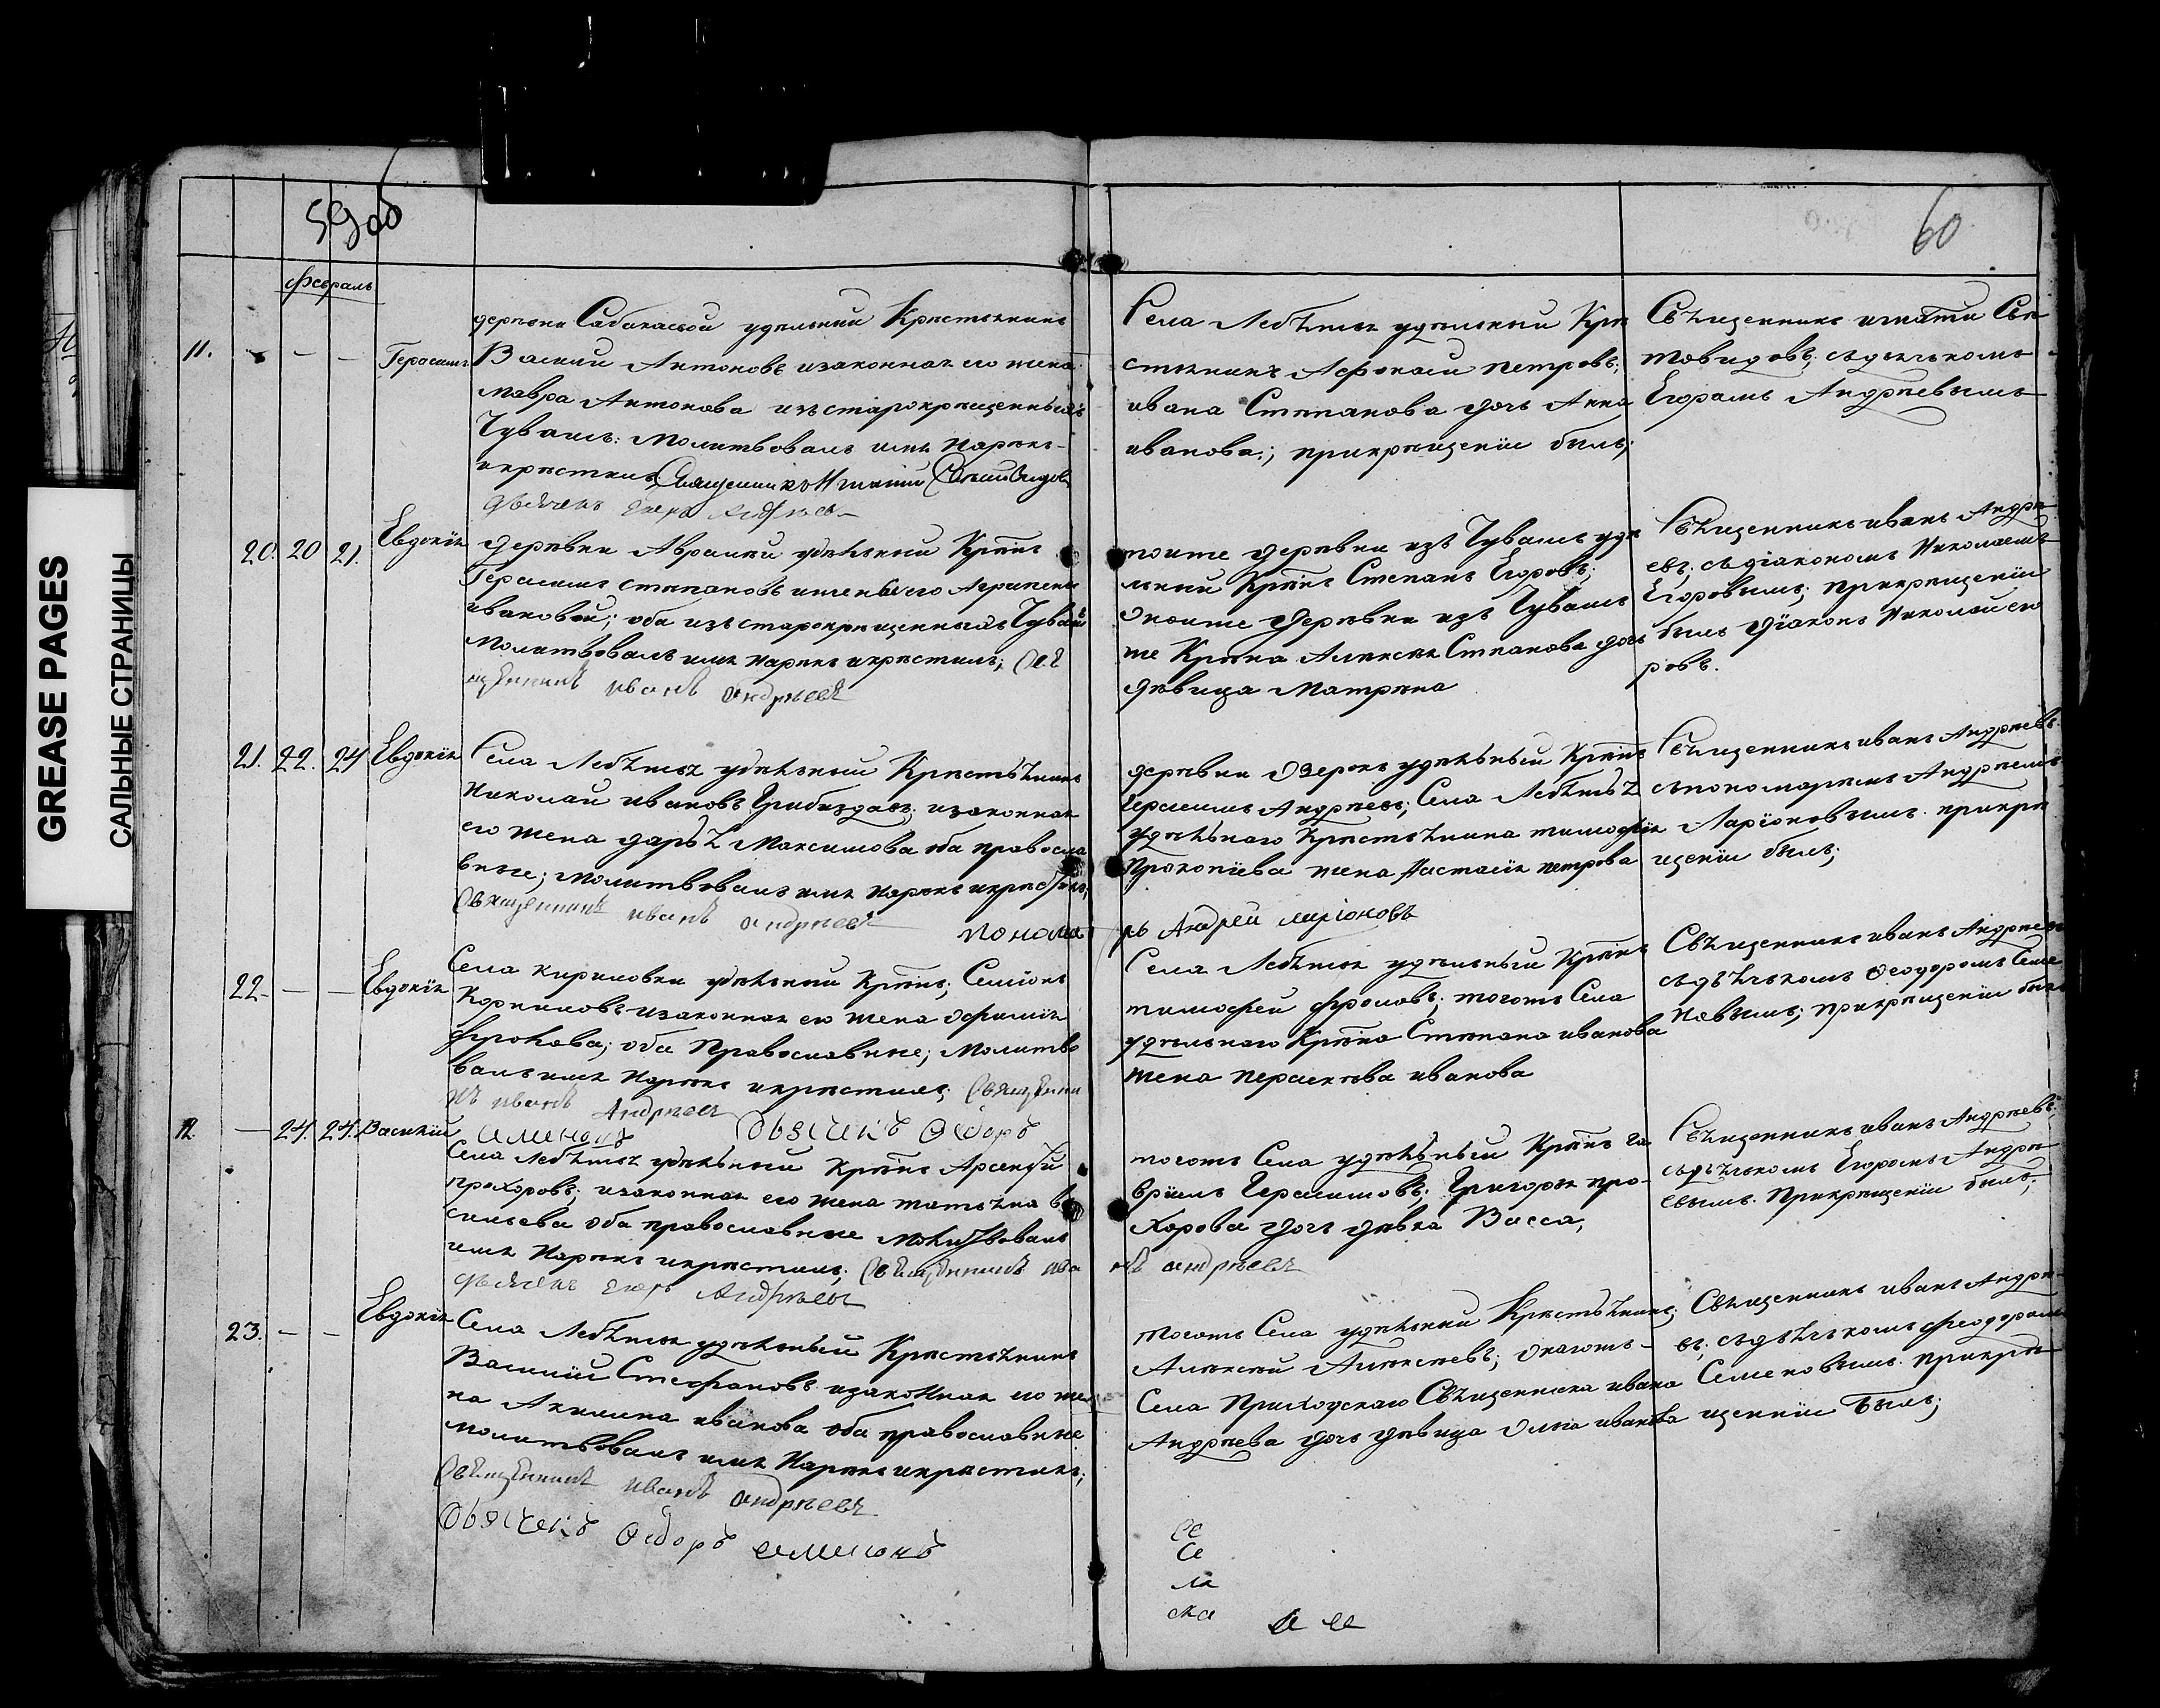 59об
60
GREASE PAGES
САЛЬНЫЕ СТРАНИЦЫ
февраль
11. — — Герасимъ
деревни Сабакаевой удѣльный Крестьянинъ
Василий Антоновъ изаконная его жена
мавра Антонова изъ старокрещенныхъ
Чувашъ: Молитвовалъ имя нарекъ
икрестилъ Священникъ Игнатий
Села Лебѣжья удѣльный Кре
стьянинъ петровъ;
ивана Степанова дочь Анна
иванова; прикрещении былъ;
Свѣщенникъ игнатий Свѣ
товидовъ; сьдьячкомъ
Егоромъ Андреевымъ
20. 20 21. Евдокия
деревни удѣльный
Герасимъ степановъ ижена его Агрипена
ивановой; оба изъ старокрещенныхъ Чувашъ
Молитвовалъ имя нарекъ икрестилъ; Свѣ
щенникъ иванъ андреевъ
тоиже деревни изъ Чувашъ удѣ
льный Степанъ Егоровъ;
оноиже деревни изъ Чувашъ
же Алексея Степанова дочь
дѣвица Матрена
Свѣщенникъ иванъ Андре
евъ; сьдіакономъ Николаемъ
Егоровымъ; прикрещеніи
былъ діаконъ Николай его
ровъ.
21. 22. 24 Евдокия
Села Лебѣжья удѣльный Крестьянинъ
Николай ивановъ изаконная
его жена дарья Максимова оба правосла
вные; молитвовалъ имя нарекъ икрестилъ;
Священникъ иванъ андреевъ
понома
деревни Озерокъ удѣльный
Герасимъ Андреевъ; Села Лебѣжья
удѣльнаго Крестьянина тимофея
Прокопиева жена Настасия петрова
рь Андрей ларіоновъ
Свѣщенникъ иванъ Андреевъ
съпономаремъ Андреемъ
Ларіоновымъ. прикре
щеніи былъ;
22. — — Евдокия
Села кириловки удѣльный Семіонъ
Корниловъ изаконная его жена
фролова; оба Православные; Молитво
валъ имя нарекъ икрестилъ; Священни
къ иванъ Андреевъ
Дьячекъ Федоръ
семеновъ
Села Лебѣжья удѣльный
тимофей фроловъ; тогожъ Села
удѣльнаго Степана иванова
жена иванова
Свѣщенникъ иванъ Андреевъ
сьдьячкомъ Феодоромъ Семе
новымъ; прикрещеніи былъ
12. — 24. 24. Василий
Села Лебѣжья удѣльный Арсентий
прохоровъ; изаконная его жена татьяна ва
сильева оба православные молитвовалъ
имя нарекъ икрестилъ; Священникъ ива
дьячекъ егоръ Андреевъ
тогожъ Села удѣльный га
врилъ Герасимовъ; Григорья про-
хорова дочь дѣвка Васса,
нъ андреевъ
Свѣщенникъ иванъ Андреевъ;
сьдьячкомъ Егоромъ Андре
евымъ. Прикрещеніи былъ;
23. — — Евдокия
Села Лебѣжья удѣльный Крестьянинъ
Василий Стефановъ изаконная его же
на Акилина иванова оба православные
молитвовалъ имя нарекъ икрестилъ;
Священникъ иванъ андреевъ
Дьячекъ Федоръ семионовъ
тогожъ Села удѣльный Крестьянинъ;
Алексей Алексеевъ; онагожъ
Села Приходскаго Свѣщенника ивана
Андреева дочь дѣвица Олга иванова
Свѣщенникъ иванъ Андре
въ; сьдьячкомъ феодоромъ
Семеновымъ. прикре
щеніи былъ;
се
Се
ла